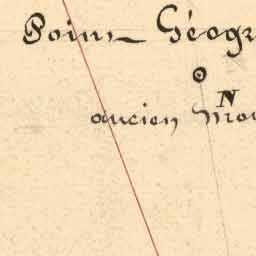 Point Géogr
N
ancien Mou